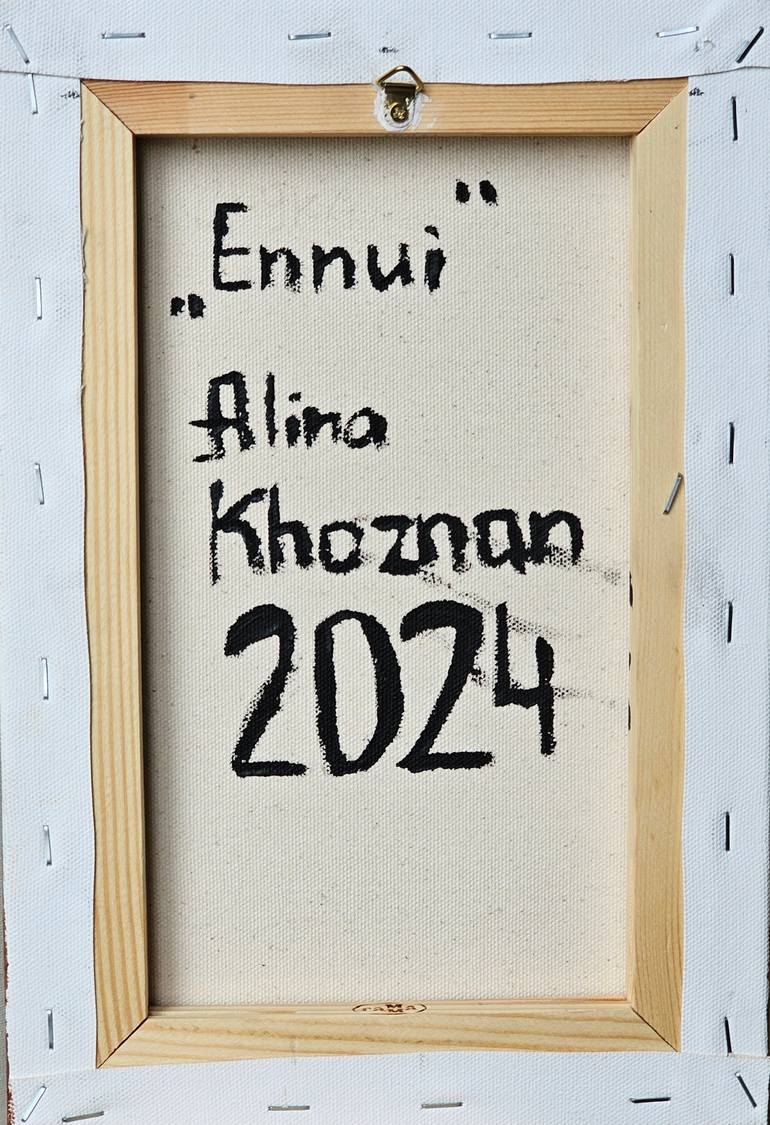 „Ennui"
Alina
Khoznan
2024